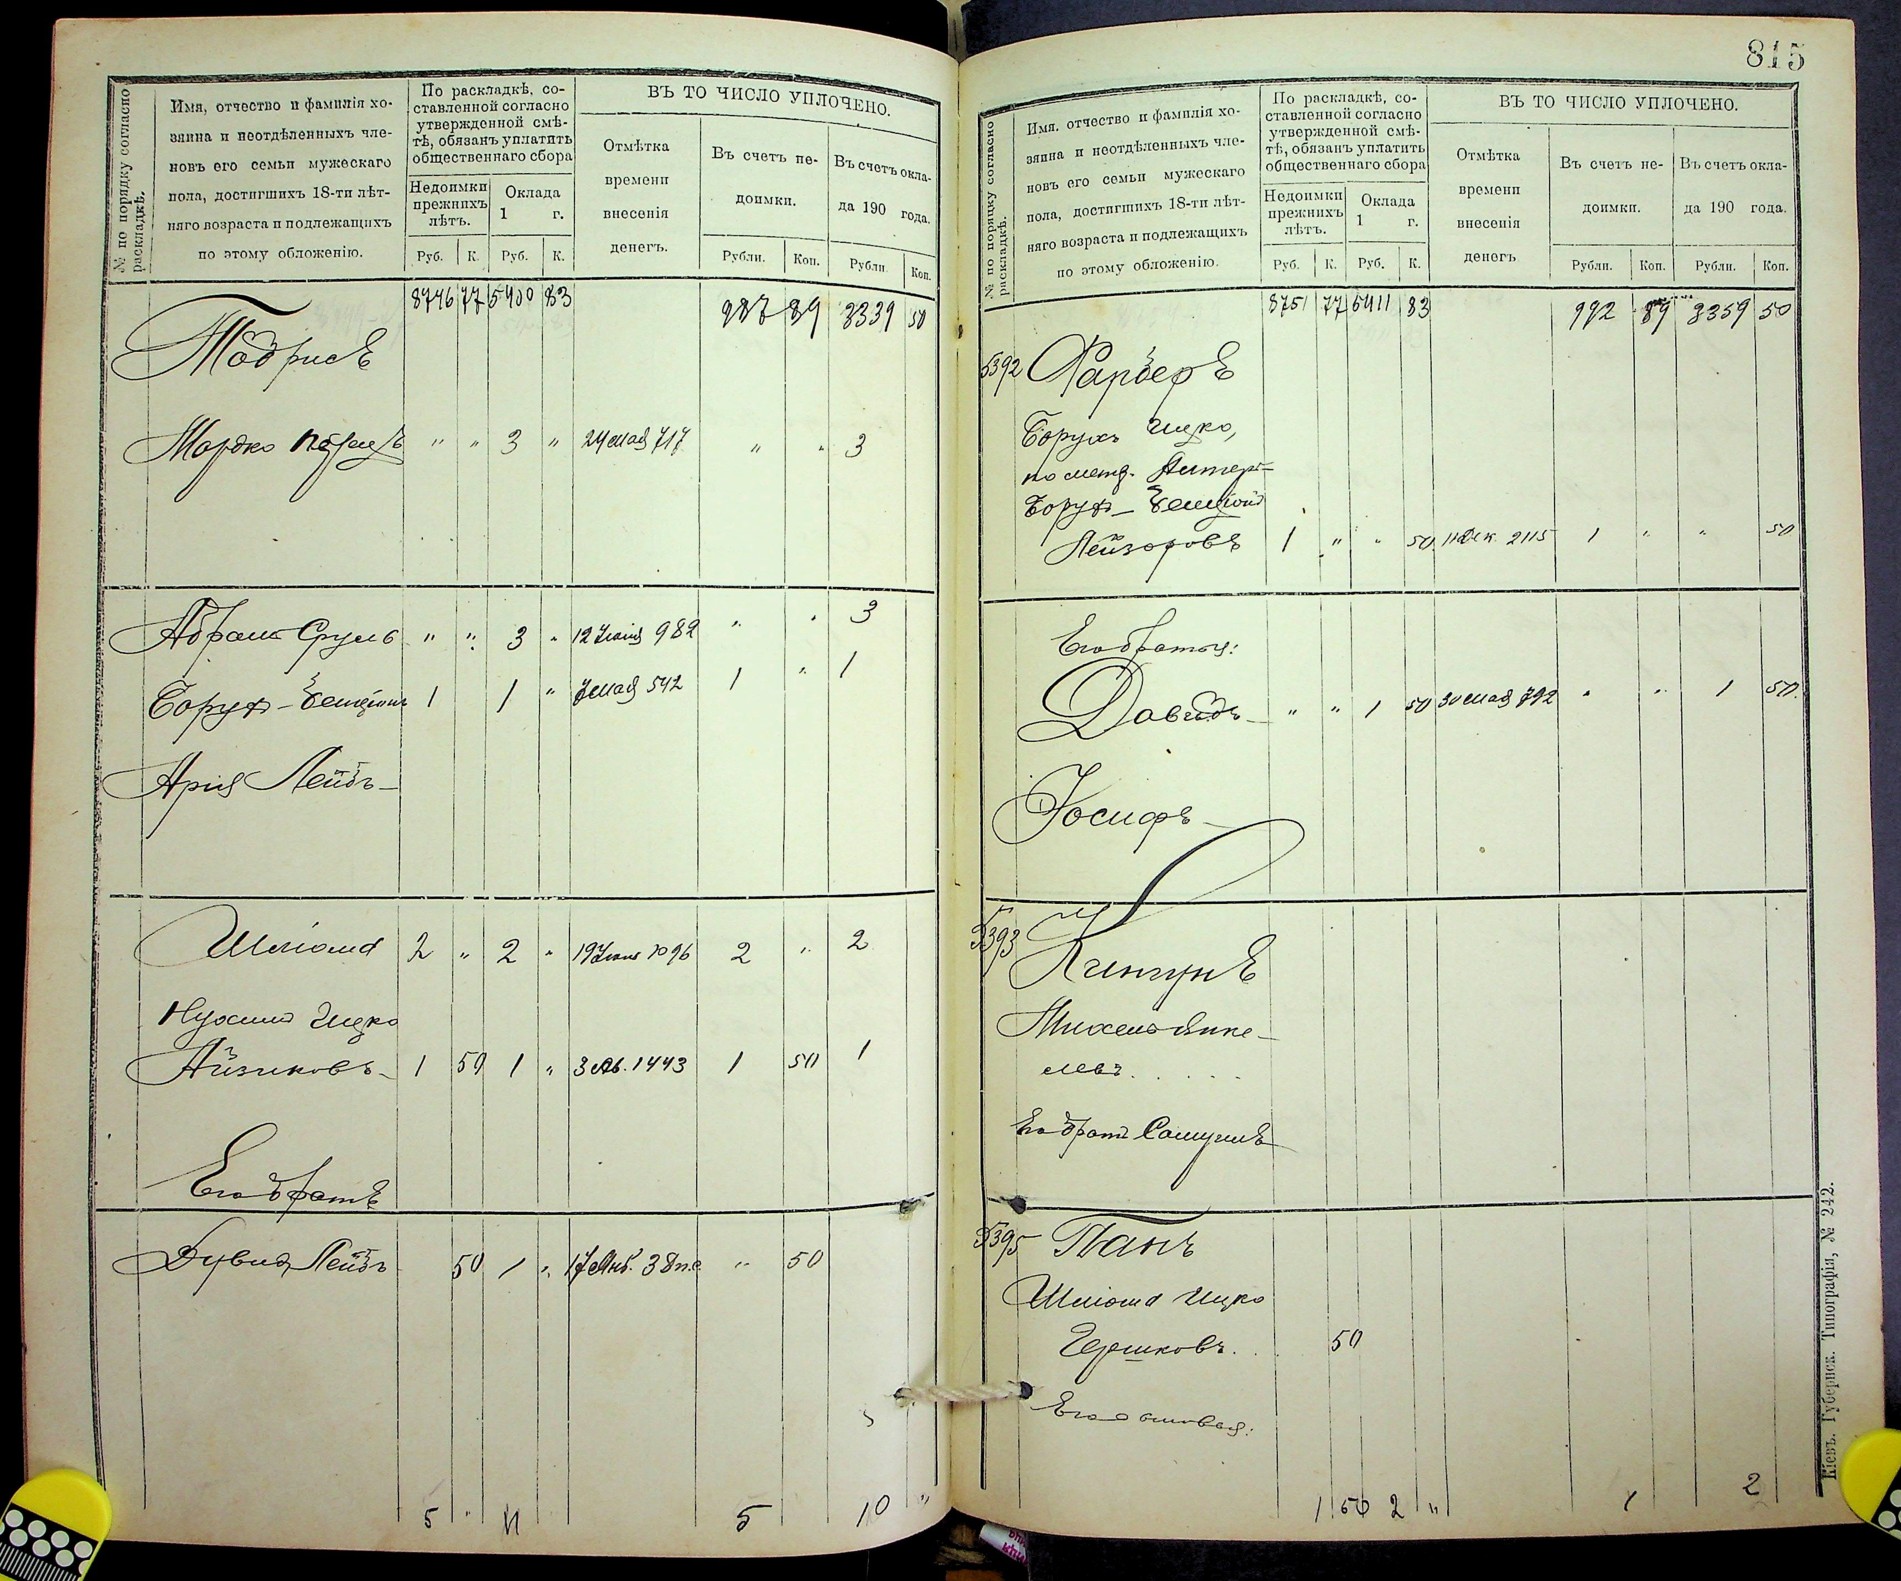 № по порядку согласно раскладкѣ.
Имя, отчество и фамилія хо-
зяина и неотдѣленныхъ чле-
новъ его семьи мужескаго
пола, достигшихъ 18-ти лѣт-
няго возраста и подлежащихъ
по этому обложенію.
По раскладкѣ, со-
ставленной согласно
утвержденной смѣ-
тѣ, обязанъ уплатить
общественнаго сбора
Недоимки
прежнихъ
лѣтъ.
Оклада
1 г.
Руб. К. Руб. К.
ВЪ ТО ЧИСЛО УПЛОЧЕНО.
Отмѣтка
времени
внесенія
денегъ.
Въ счетъ не-
доимки.
Въ счетъ окла-
да 190 года.
Рубли. Коп. Рубли Коп.
8746 77 5400 83 987 89 3339 50
Тодрисъ
Мордко " " 3 " 24 мая 717 " " 3
Абрамъ Сруль " " 3 " 12 Іюня 982 " " 3
Борухъ-Бенціонъ 1 1 " 7 мая 542 1 " 1
Арія Лейбъ
Шліома 2 " 2 " 19 Іюня 1096 2 " 2
Нухимъ Ицко
Айзиковъ 1 50 1 " 3 Ав. 1443 1 50 1
Его братъ
Дувидъ Лейбъ 50 1 " 17 Янв. 38 " 50
5 " 11 5 10 "
815
№ по порядку согласно раскладкѣ.
Имя, отчество и фамилія хо-
зяина и неотдѣленныхъ чле-
новъ его семьи мужескаго
пола, достигшихъ 18-ти лѣт-
няго возраста и подлежащихъ
по этому обложенію.
По раскладкѣ, со-
ставленной согласно
утвержденной смѣ-
тѣ, обязанъ уплатить
общественнаго сбора
Недоимки
прежнихъ
лѣтъ.
Оклада
1 г.
Руб. К. Руб. К.
ВЪ ТО ЧИСЛО УПЛОЧЕНО.
Отмѣтка
времени
внесенія
денегъ
Въ счетъ не-
доимки.
Въ счетъ окла-
да 190 года.
Рубли. Коп. Рубли. Коп.
8751 77 5411 83 992 89 3359 50
5392 Фарберъ
Борухъ Ицко,
по метр. Алтеръ-
Борухъ-Бенціонъ
Лейзоровъ 1 " " 50 11 Дек. 2115 1 " " 50
Его братья:
Давидъ " " 1 50 30 мая 792 " " 1 50
Іосифъ
5393
Михель Янке-
левъ
Его братъ Самуилъ
5395 Панъ
Шліома Ицко
Гершковъ. 50
Его сыновья:
1 50 2 " 1 2
Кіевъ. Губернск. Типографія, № 242.